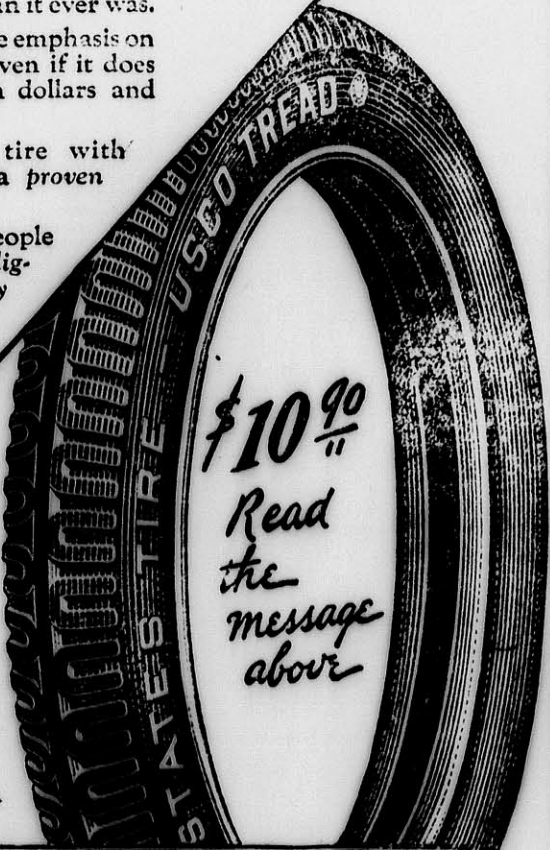 n it ever was.
e emphasis on
ven if it does
dollars and
tire with
a proven
eople
lig-
y
USCO TREAD
STATES TIRE
$10 90
Read
the
message
above